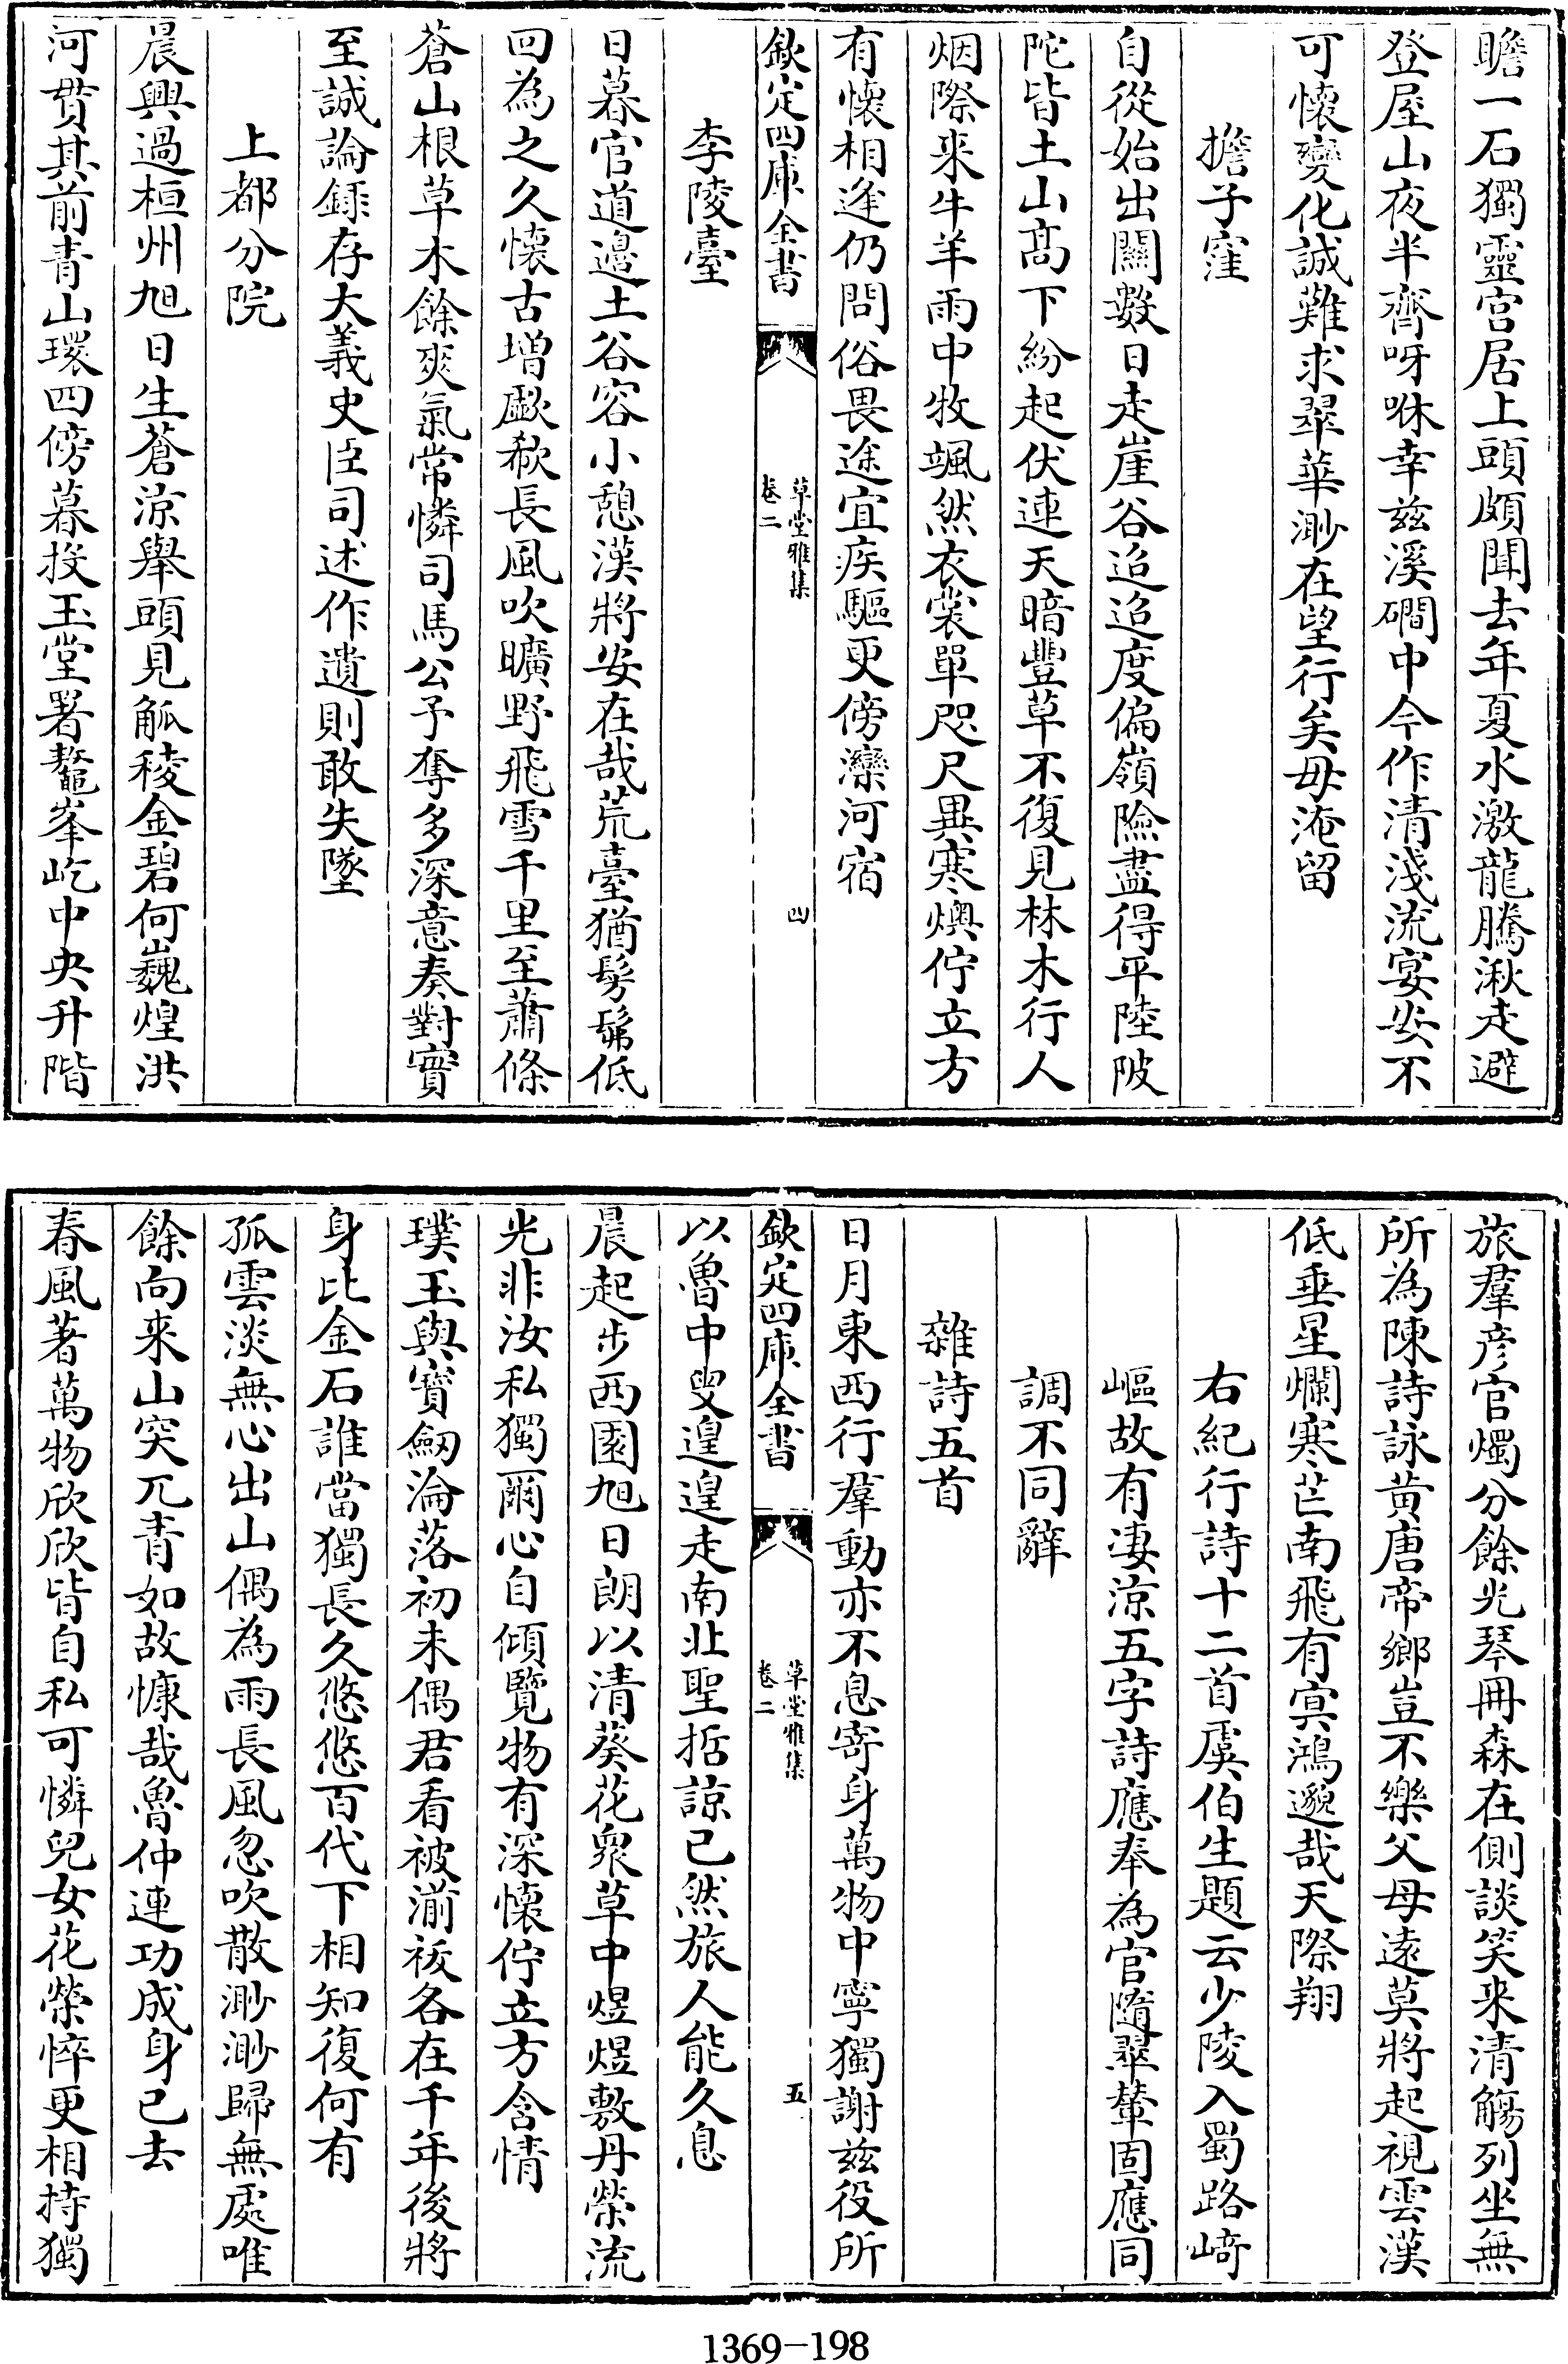 瞻一石獨靈宫居上頭頗聞去年夏水激龍騰湫走避
登屋山夜半齊呀咻幸兹溪磵中今作清淺流宴安不
可懷變化誠難求翠華渺在望行矣毋淹留
擔子窪
自從始出關數日走崖谷迢迢度偏嶺險盡得平陸陂
陀皆土山高下紛起伏連天暗豐草不復見林木行人
烟際来牛羊雨中牧颯然衣裳單咫尺異寒燠佇立方
有懷相逢仍問俗畏途宜疾驅更傍灤河宿
欽定四庫全書
草堂雅集
卷二
四
李陵臺
日暮官道邉土谷容小憩漢將安在哉荒臺猶髣髴低
回為之久懷古増歔欷長風吹曠野飛雪千里至蕭條
蒼山根草木餘爽氣常憐司馬公予奪多深意奏對實
至誠論録存大義史臣司述作遺則敢失墜
上都分院
晨興過桓州旭日生蒼涼舉頭見觚稜金碧何巍煌洪
河貫其前青山環四傍暮投玉堂署鼇峯屹中央升階
旅羣彦官燭分餘光琴冊森在側談笑来清觴列坐無
所為陳詩詠黄唐帝鄉豈不樂父母逺莫將起視雲漢
低垂星爛寒芒南飛有㝠鴻邈哉天際翔
右紀行詩十二首虞伯生題云少陵入蜀路崎
嶇故有凄涼五字詩應奉為官隨翠輦固應同
調不同辭
雜詩五首
日月東西行羣動亦不息寄身萬物中寧獨謝兹役所
欽定四庫全書
草堂雅集
卷二
五
以魯中叟遑遑走南北聖括諒已然旅人能久息
晨起步西園旭日朗以清葵花衆草中煜煜敷丹榮流
光非汝私獨爾心自傾覽物有深懷佇立方含情
璞玉與寳劒淪落初未偶君看被湔祓各在千年後將
身比金石誰當獨長久悠悠百代下相知復何有
孤雲淡無心出山偶為雨長風忽吹散渺渺歸無處唯
餘向来山突兀青如故慷哉魯仲連功成身已去
春風著萬物欣欣皆自私可憐兒女花榮悴更相持獨
1369-198